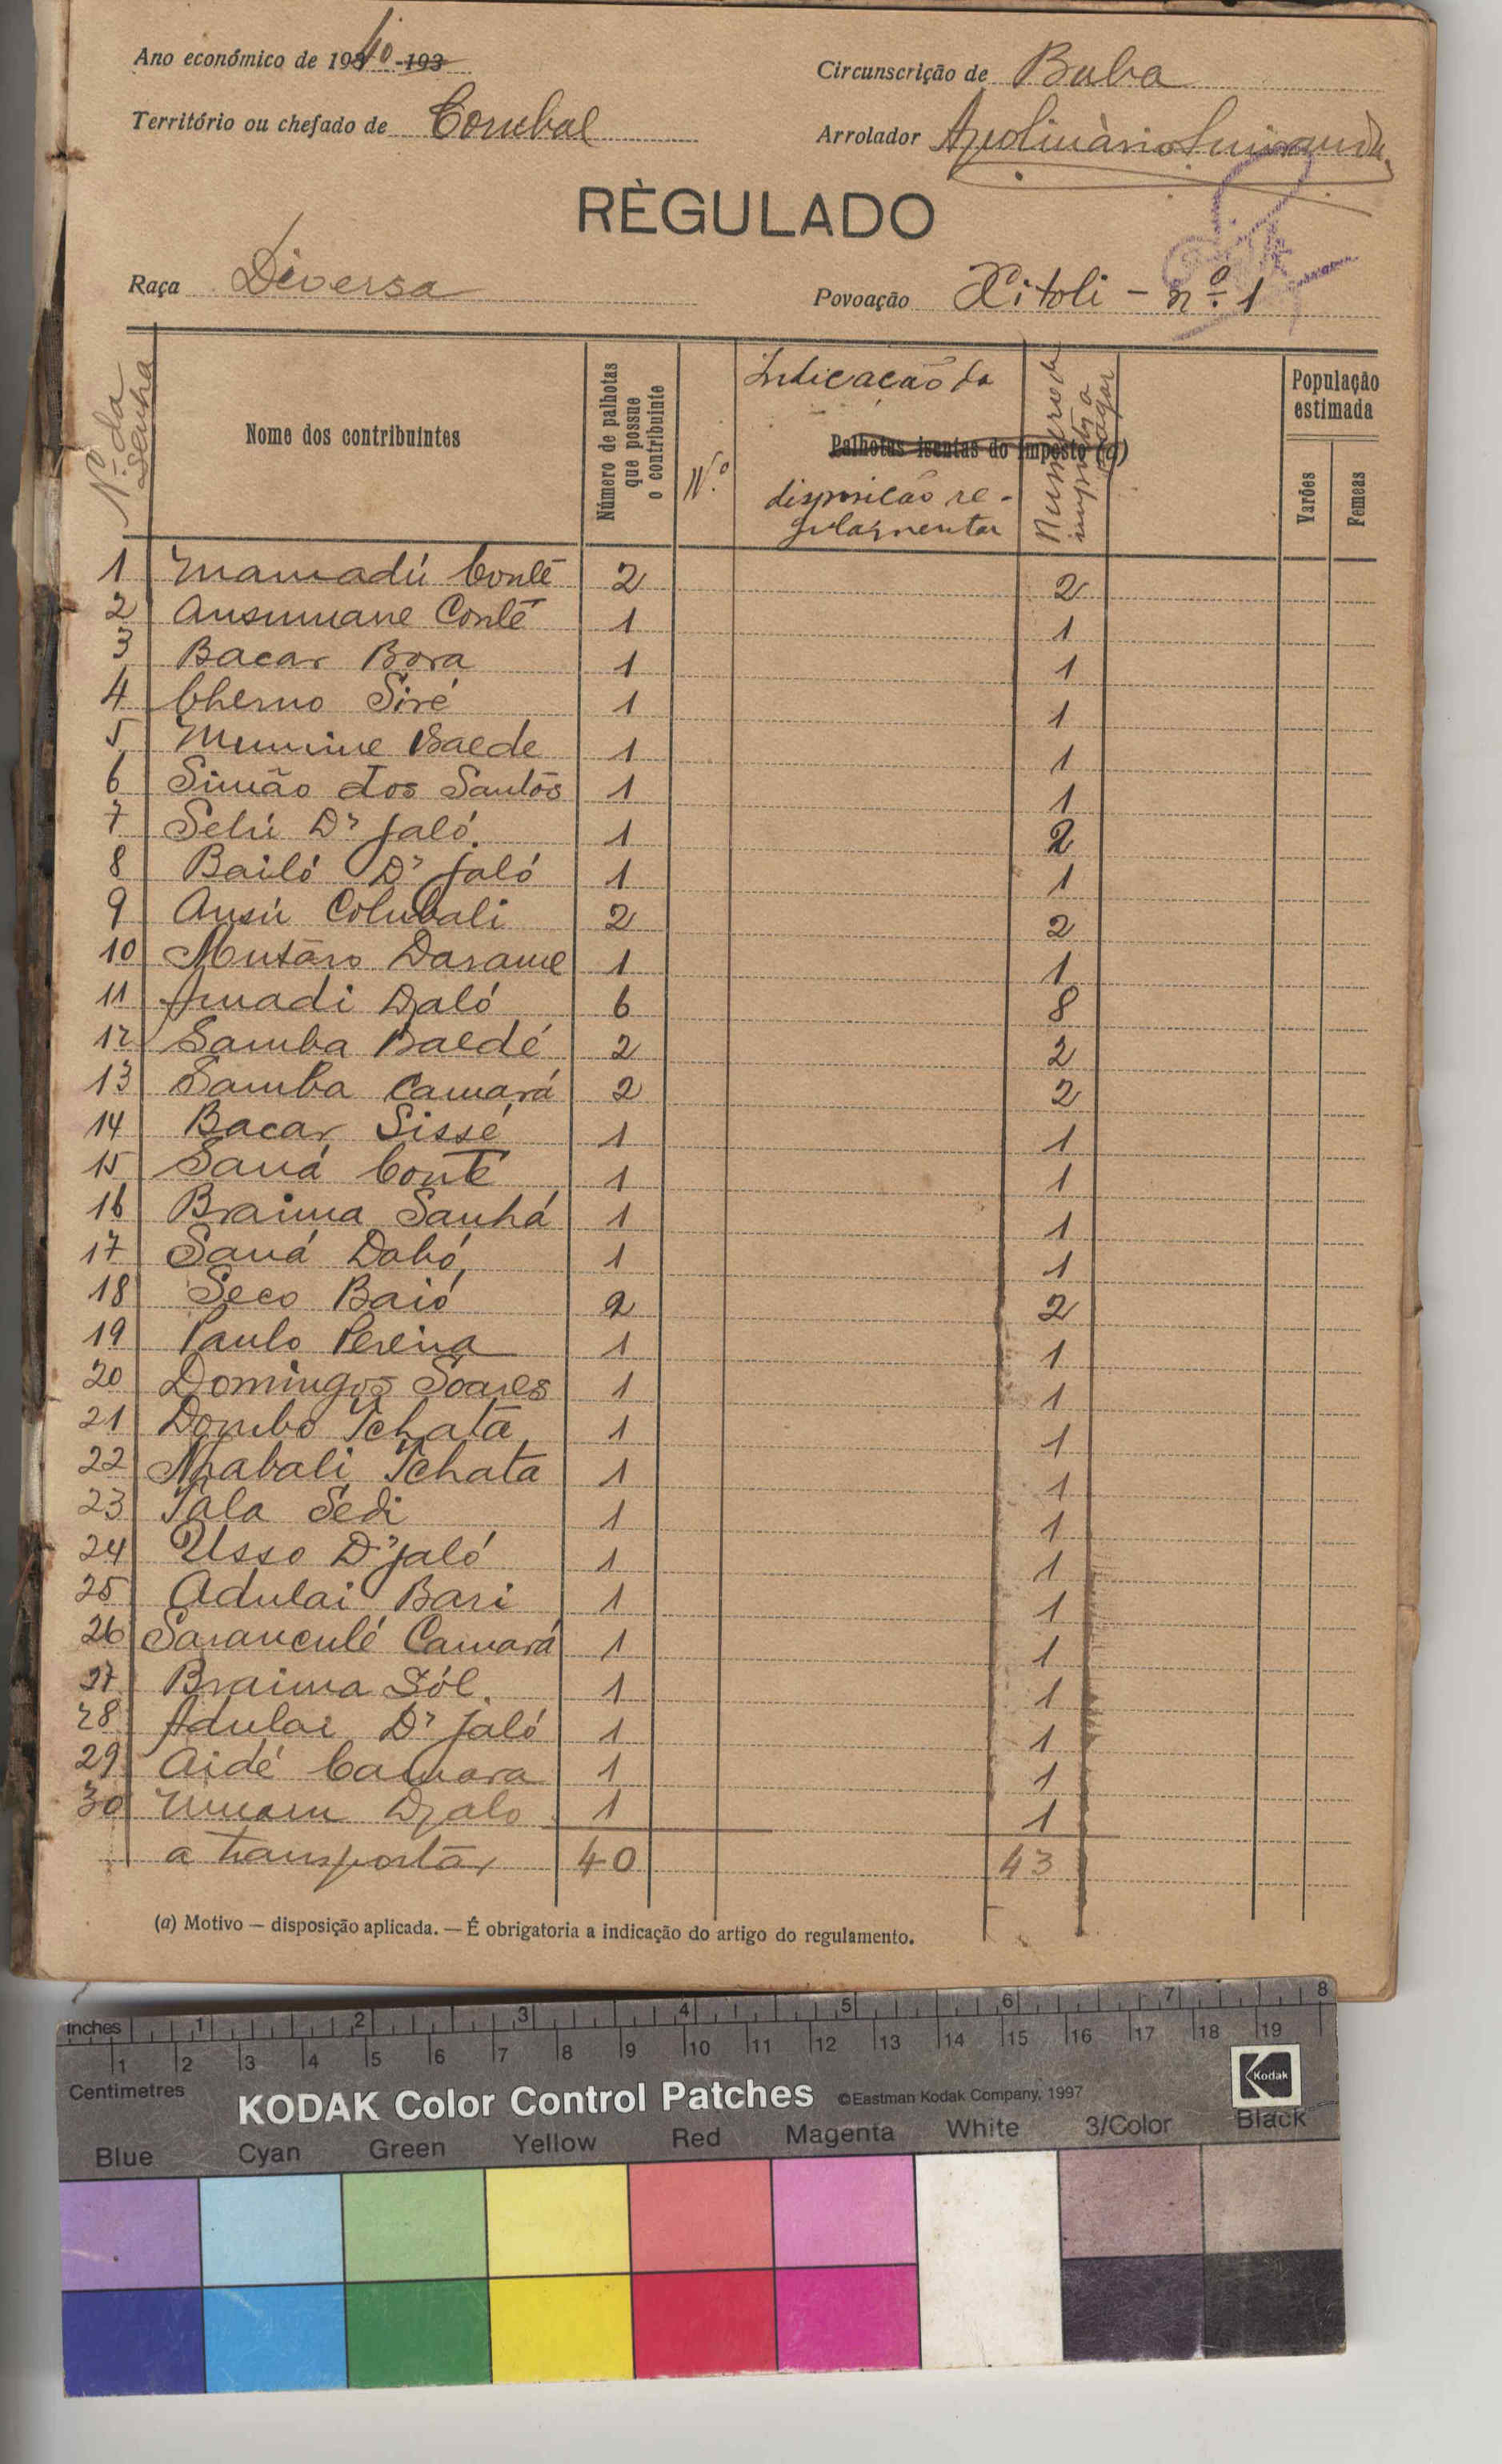 Ano económico de 1940 -193
Circunscrição de Buba
Território ou chefado de Corubal
Arrolador Apolinàrio
RÈGULADO
Raça Diversa
Povoação Xitoli - nº 1
Nº da senha
Nome dos contribuintes
Número de palhotas que possue o contribuinte
N.º
Indicação da
Palhotas isentas do imposto (a)
disposição re-
gulamentar
Numero de imposto a pagar
População estimada
Varões
Femeas
1 Mamadú Conté 2 2
2 Ansumane Conté 1 1
3 Bacar Bora 1 1
4 Cherno Siré 1 1
5 Mumine Baede 1 1
6 Simão dos Santos 1 1
7 Selú D'jaló. 1 2
8 Bailó D'jaló 1 1
9 Ansú Colubali 2 2
10 Mutaro Darame 1 1
11 Amadi Djaló 6 8
12 Samba Baedé 2 2
13 Samba Camará 2 2
14 Bacar Sissé 1 1
15 Saná Conté 1 1
16 Braima Sanhá 1 1
17 Saná Dabó 1 1
18 Seco Baió 2 2
19 Paulo Pereira 1 1
20 Domingos Soares 1 1
21 Dombo Tchata 1 1
22 Nhabali Tchata 1 1
23 Tala Sedi 1 1
24 Usso D'jaló 1 1
25 Adulai Bari 1 1
26 Saranculé Camará 1 1
27 Braima Sól. 1 1
28 Adulai D'jaló 1 1
29 Aidé Camara 1 1
30 Umaru Djalo 1 1
a transportar 40 43
(a) Motivo — disposição aplicada. — É obrigatoria a indicação do artigo do regulamento.
Inches 1 2 3 4 5 6 7 8
1 2 3 4 5 6 7 8 9 10 11 12 13 14 15 16 17 18 19
Centimetres
KODAK Color Control Patches ©Eastman Kodak Company, 1997
Kodak
Blue Cyan Green Yellow Red Magenta White 3/Color Black